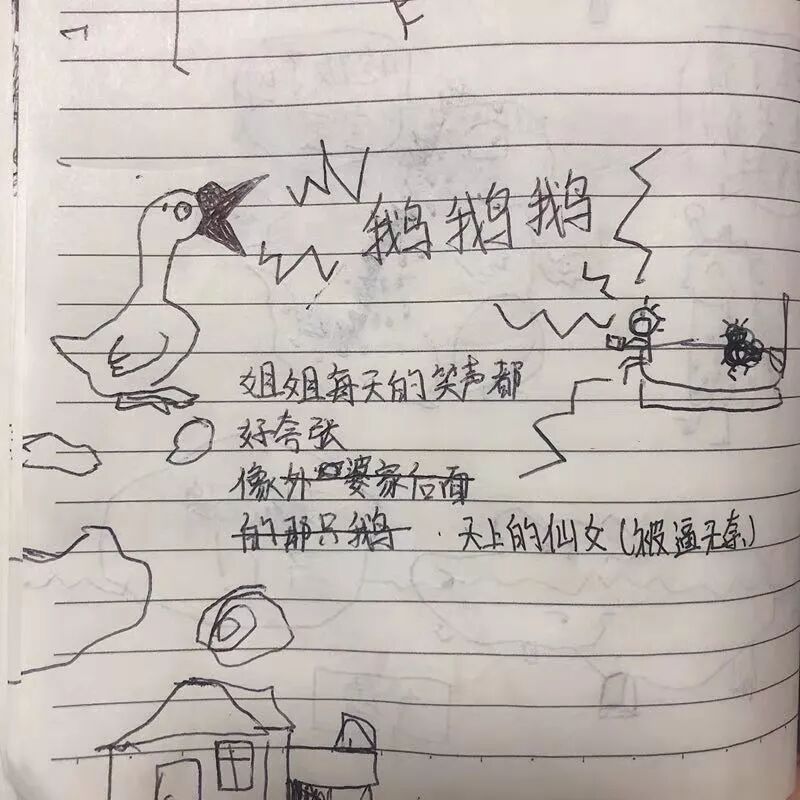 鹅 鹅 鹅
姐姐每天的笑声都
好夸张
像外婆家后面
的那只鹅 . 天上的仙女(被逼无奈)